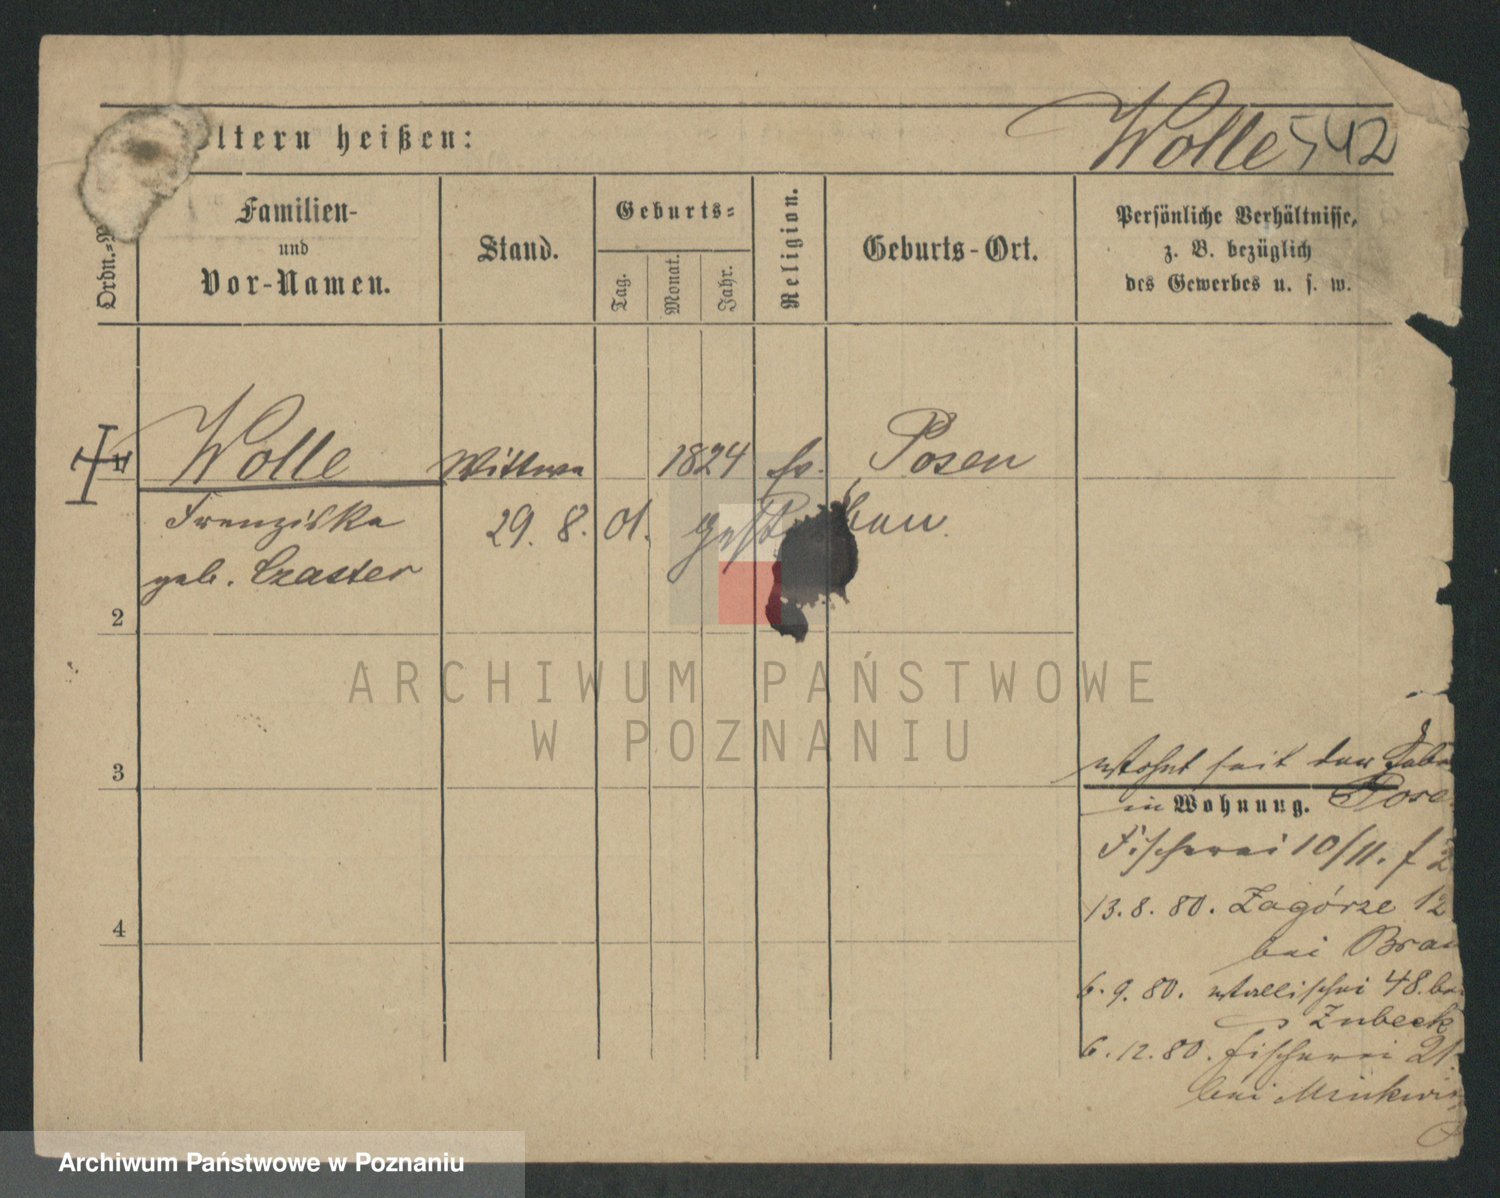 ltern heißen: Wolle 542
Ordn.-
Familien-
und
Vor-Namen.
Stand.
Geburts-
Tag.
Monat.
Jahr.
Religion.
Geburts-Ort.
Persönliche Verhältnisse,
z. B. bezüglich
des Gewerbes u. s. w.
Wolle Wittwe 1824 Posen
Franziska 29. 8. 01. gestorben.
geb. Czaster
2
ARCHIWUM PAŃSTWOWE
W POZNANIU
3
wohnt seit der
in Wohnung. Pose
Fischerei 10/11.
4
13. 8. 80. Zagórze 12
bei Bra
6. 9. 80. Wallischei 48. be
Zubeck
6. 12. 80. Fischerei 21
bei Minkwi
Archiwum Państwowe w Poznaniu